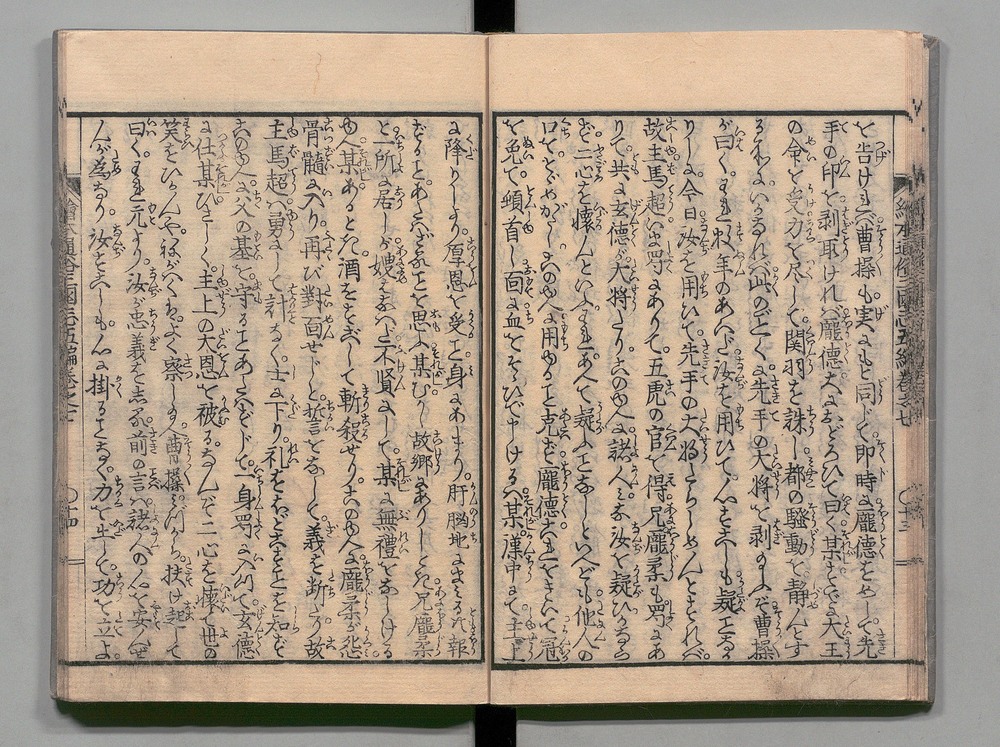 を告けれバ曹操も実にもと同じく即時に龐德をめして先
手の印を剥取けれバ龐德大におどろひて曰く某まさに大王
の命を受力を尽して関羽を誅し都の騒動を静んとす
るにいかなれバ此のごとく先手の大将を剥のふぞ曹操
が曰くわれ数年のあいだ汝を用ひて心に少しも疑ふことな
りしに今日汝を用いて先手の大将たらしめんとすれバ
故主馬超ハ蜀にありて五虎の官を得兄龐柔も蜀にあ
りて共に玄德が大将たり此のゆへに諸人みな汝を疑ひ
二心を懐んといふわれあへて疑ふことなしといへども他人の
口をとゞめがたし此のゆへ用ること克ず龐德これをきいて冠
を免て頓首し面に血をそゝひで申けるハ某漢中にて主上
に降りしより厚恩を受こと身にあまり肝脳地にまみるれ𪜈報
ずることあたハざることを思ふ某むかし故郷にありしとき兄龐柔
と一所に居しが嫂不賢にして某に無禮をなしける
ゆへ某あるとき酒に斬殺せり此のゆへに龐柔が恐
骨髓に入り再び對面せじと誓言をなして義を断り故
主馬超ハ勇にして計なく士に下り礼をすることを知ず
此のゆへに父の基を守ることあたハずして身蜀に入りて玄德
に仕某ひさしく主上の大恩を被るなんぞ二心を懐て世の
笑をひかんや祢がハくハよく察し曹操みづから扶け起して
曰くわれ元より汝が忠義を知る前の言ハ諸人の心を安んぜ
んが為なり汝すこしも心に掛ることなく力を出して功を立よ
繪本通俗三國志五編巻之七
十三
繪本通俗三國志五編巻之七
十四